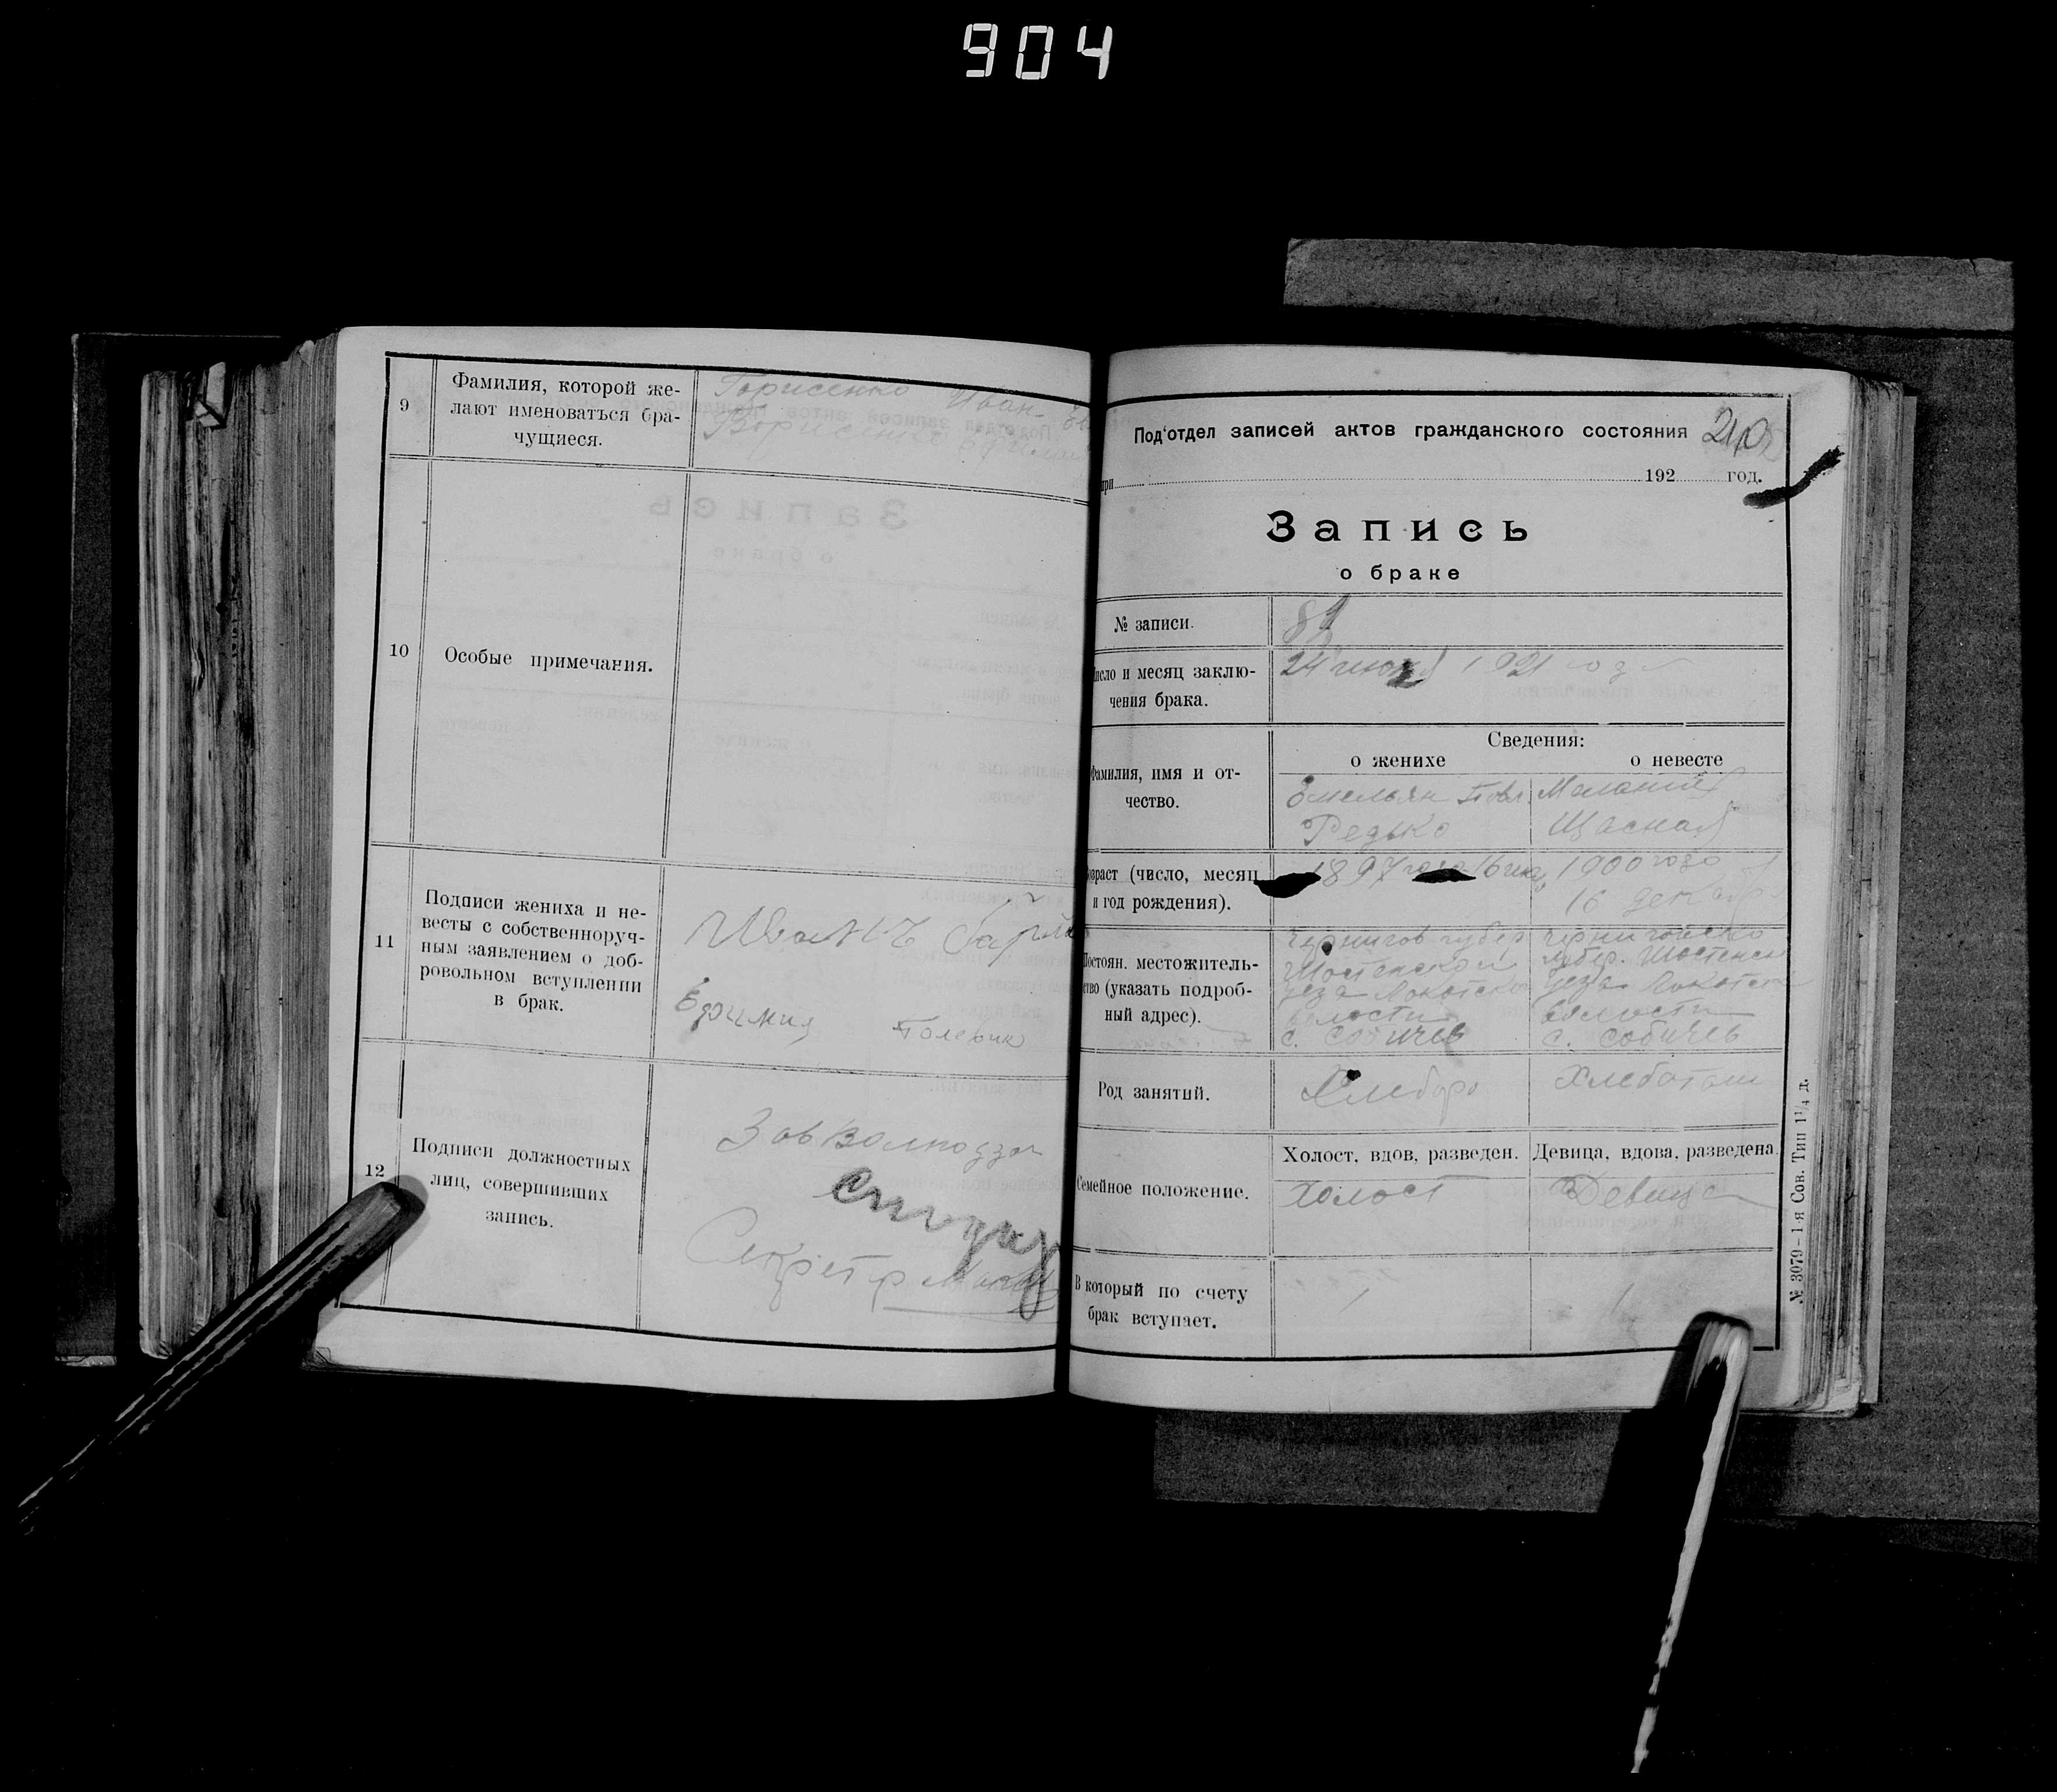 904
9
Фамилия, которой же-
лают именоваться бра-
чущиеся.
Борисенко Иван
Борисенко
10
Особые примечания.
11
Подписи жениха и не-
весты с собственноруч-
ным заявлением о доб-
ровольном вступлении
в брак.
Иванъ
Ефимия
12
Подписи должностных
лиц, совершивших
запись.
Секретар
Под'отдел записей актов гражданского состояния
при 192 год.
Запись
о браке
№ записи.
Число и месяц заклю-
чения брака.
24 1921 года
Сведения:
о женихе о невесте
Фамилия, имя и от-
чество.
Емельян Павл. Мелания
Редько Щасная
Возраст (число, месяц
и год рождения).
1897 года 16 1900 года
16 декабр
Постоян. местожитель-
ство (указать подроб-
ный адрес).
Чернигов губер Черниговско
Шостенской губер. Шостенск
уезда Локотско уезда Локотск
волости волости
с. Собичев с. Собичев
Род занятий.
Хлебороб Хлебопаш
Семейное положение.
Холост, вдов, разведен. Девица, вдова, разведена.
Холост Девица
В который по счету
брак вступает.
1 1
№ 3079–1-я Сов. Тип